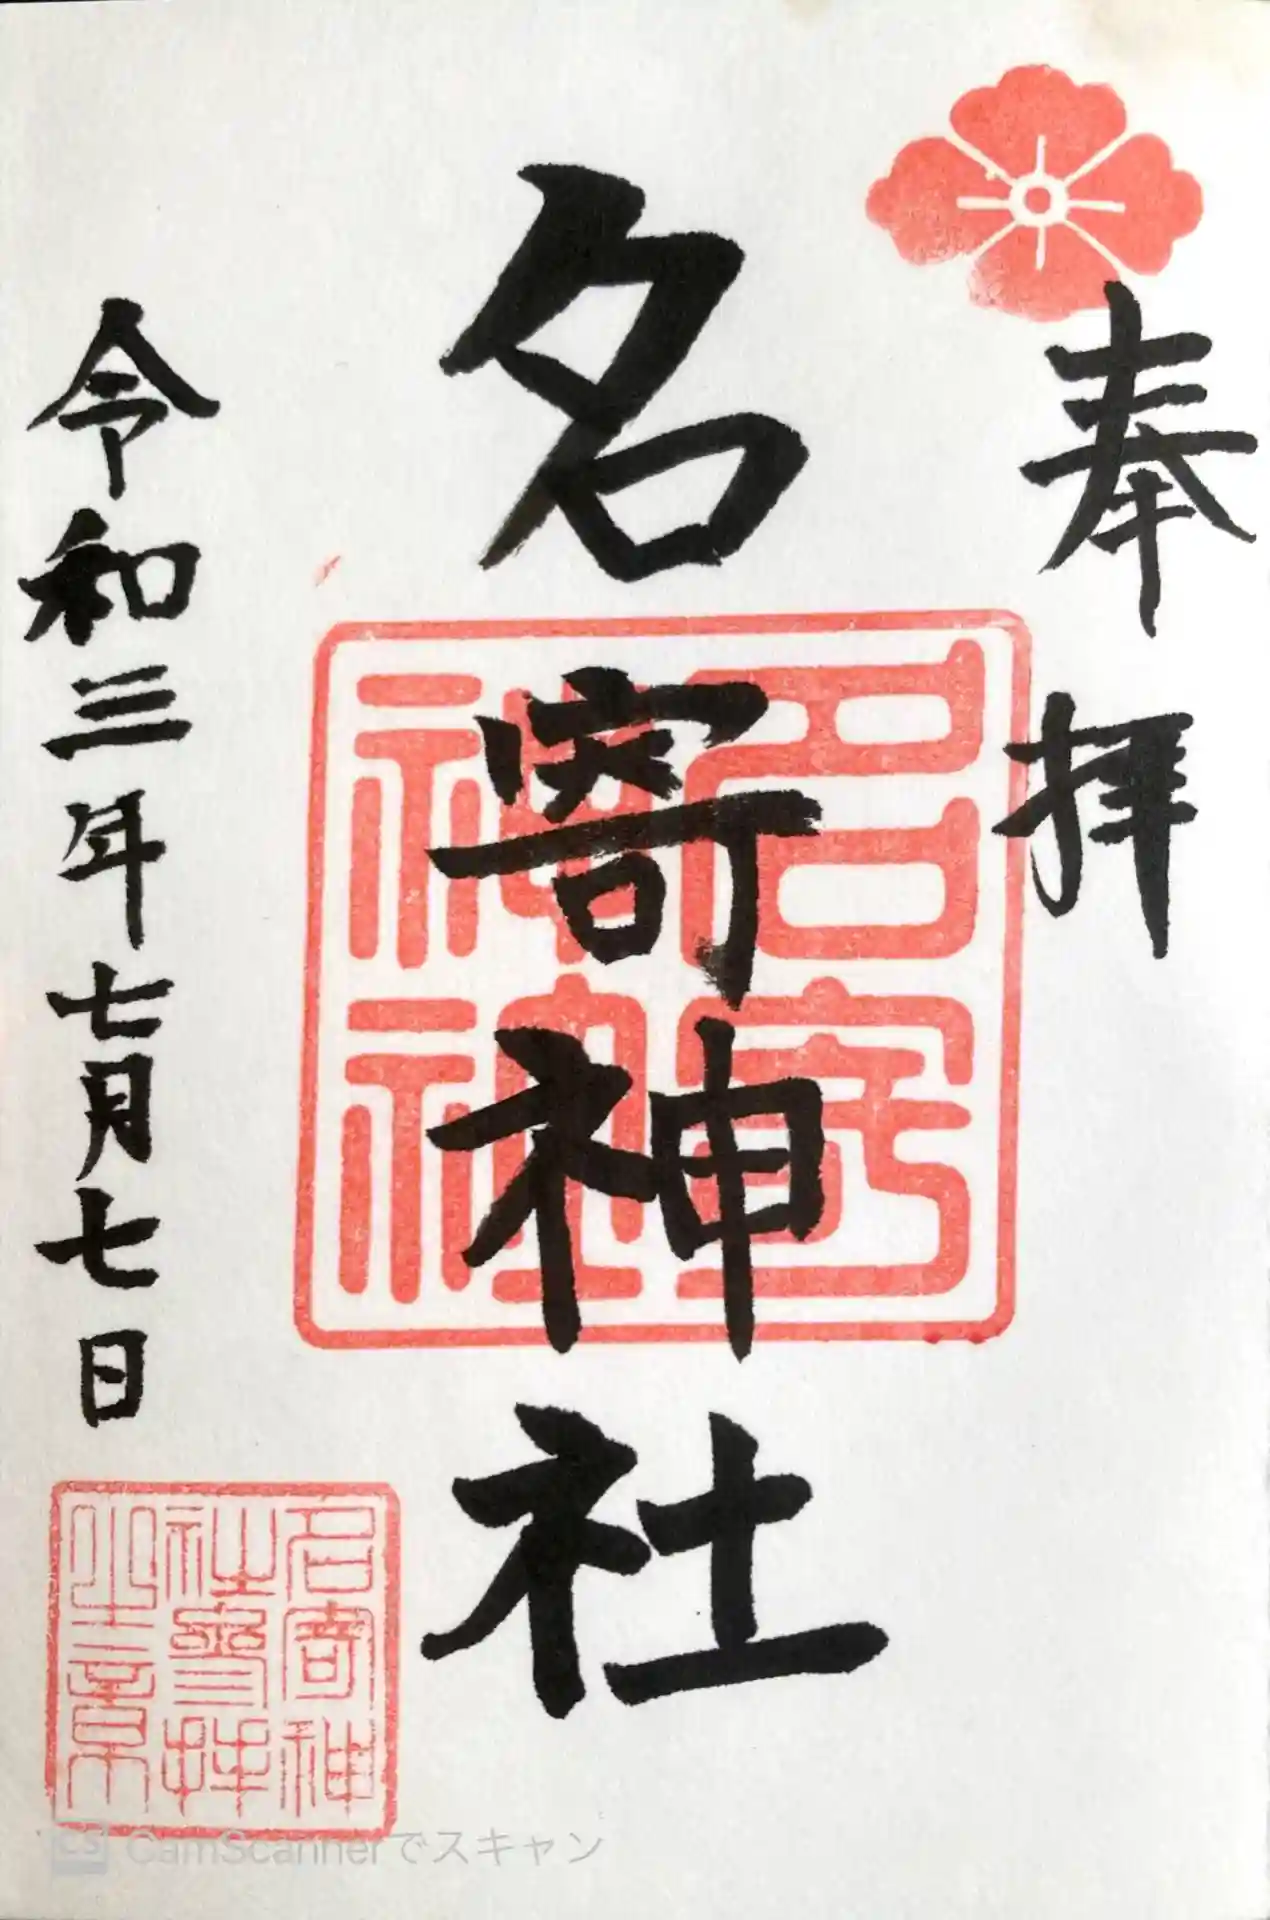 奉拝
名寄神社
名寄
神社
令和三年七月七日
名寄神
社参拝
之章
CS CamScannerでスキャン